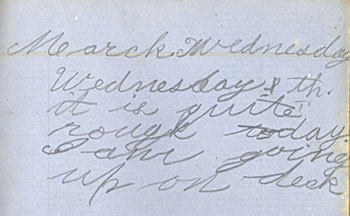 March Wednesday
Wednesday 8th.
it is quite
rough today.
I am going
up on deck